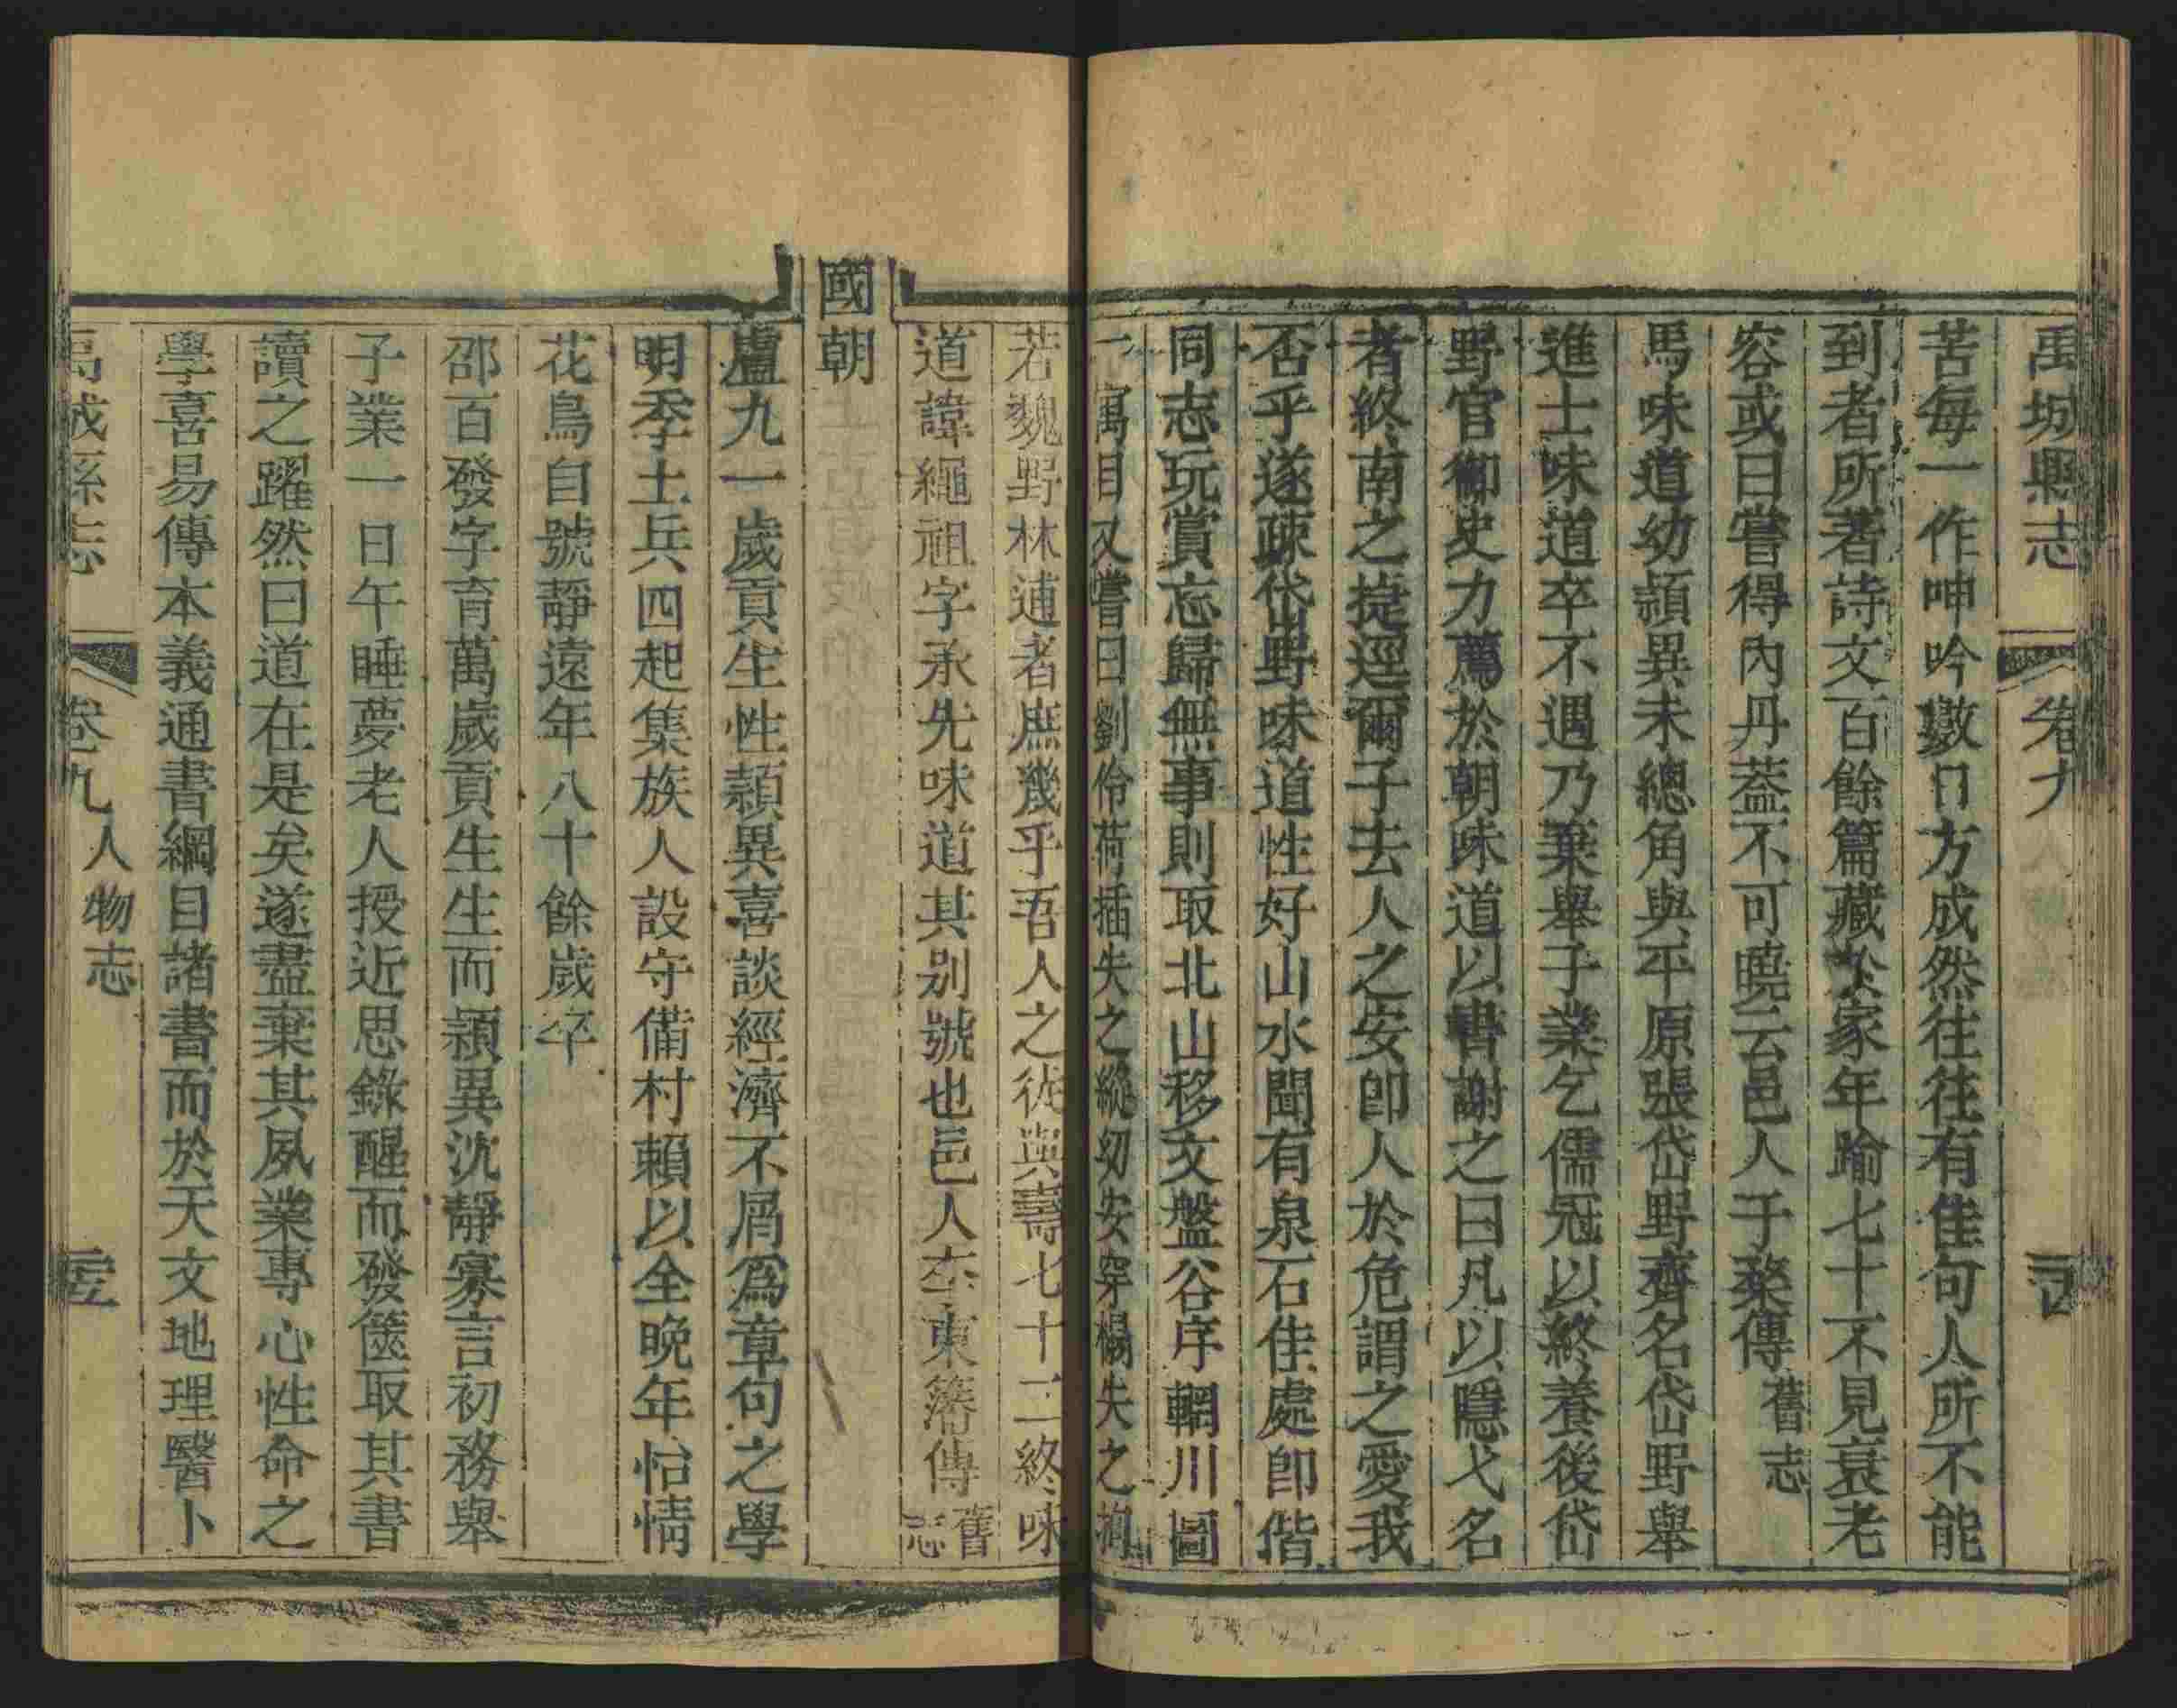 禹城縣志 卷九
苦每一作呻吟數日方成然往往有佳句人所不能
到者所著詩文百餘篇藏於家年踰七十不見衰老
容或曰嘗得內丹葢不可曉云邑人于桼傳舊志
馬味道幼頴異未總角與平原張岱野齊名岱野舉
進士味道卒不遇乃棄舉子業乞儒冠以終養後岱
野官御史力薦於朝味道以書謝之曰凡以隱弋名
者終南之捷逕爾子去人之安卽人於危謂之愛我
否乎遂疎岱野味道性好山水聞有泉石佳處卽偕
同志玩賞忘歸無事則取北山移文盤谷序輞川圖
一寓目又嘗曰劉伶荷插失之縱幼安穿榻失之拘
若魏野林逋者庶幾乎吾人之從與壽七十二終味
道諱繩祖字承先味道其别號也邑人李東籓傳舊志
國朝
盧九一歲貢生性頴異喜談經濟不屑爲章句之學
明季土兵四起集族人設守備村賴以全晚年怡情
花鳥自號靜遠年八十餘歲卒
邵百發字育萬歲貢生生而頴異沉靜寡言初務舉
子業一日午睡夢老人授近思錄醒而發篋取其書
讀之躍然曰道在是矣遂盡棄其夙業專心性命之
學喜易傳本義通書綱目諸書而於天文地理醫卜
禹城縣志 卷九人物志